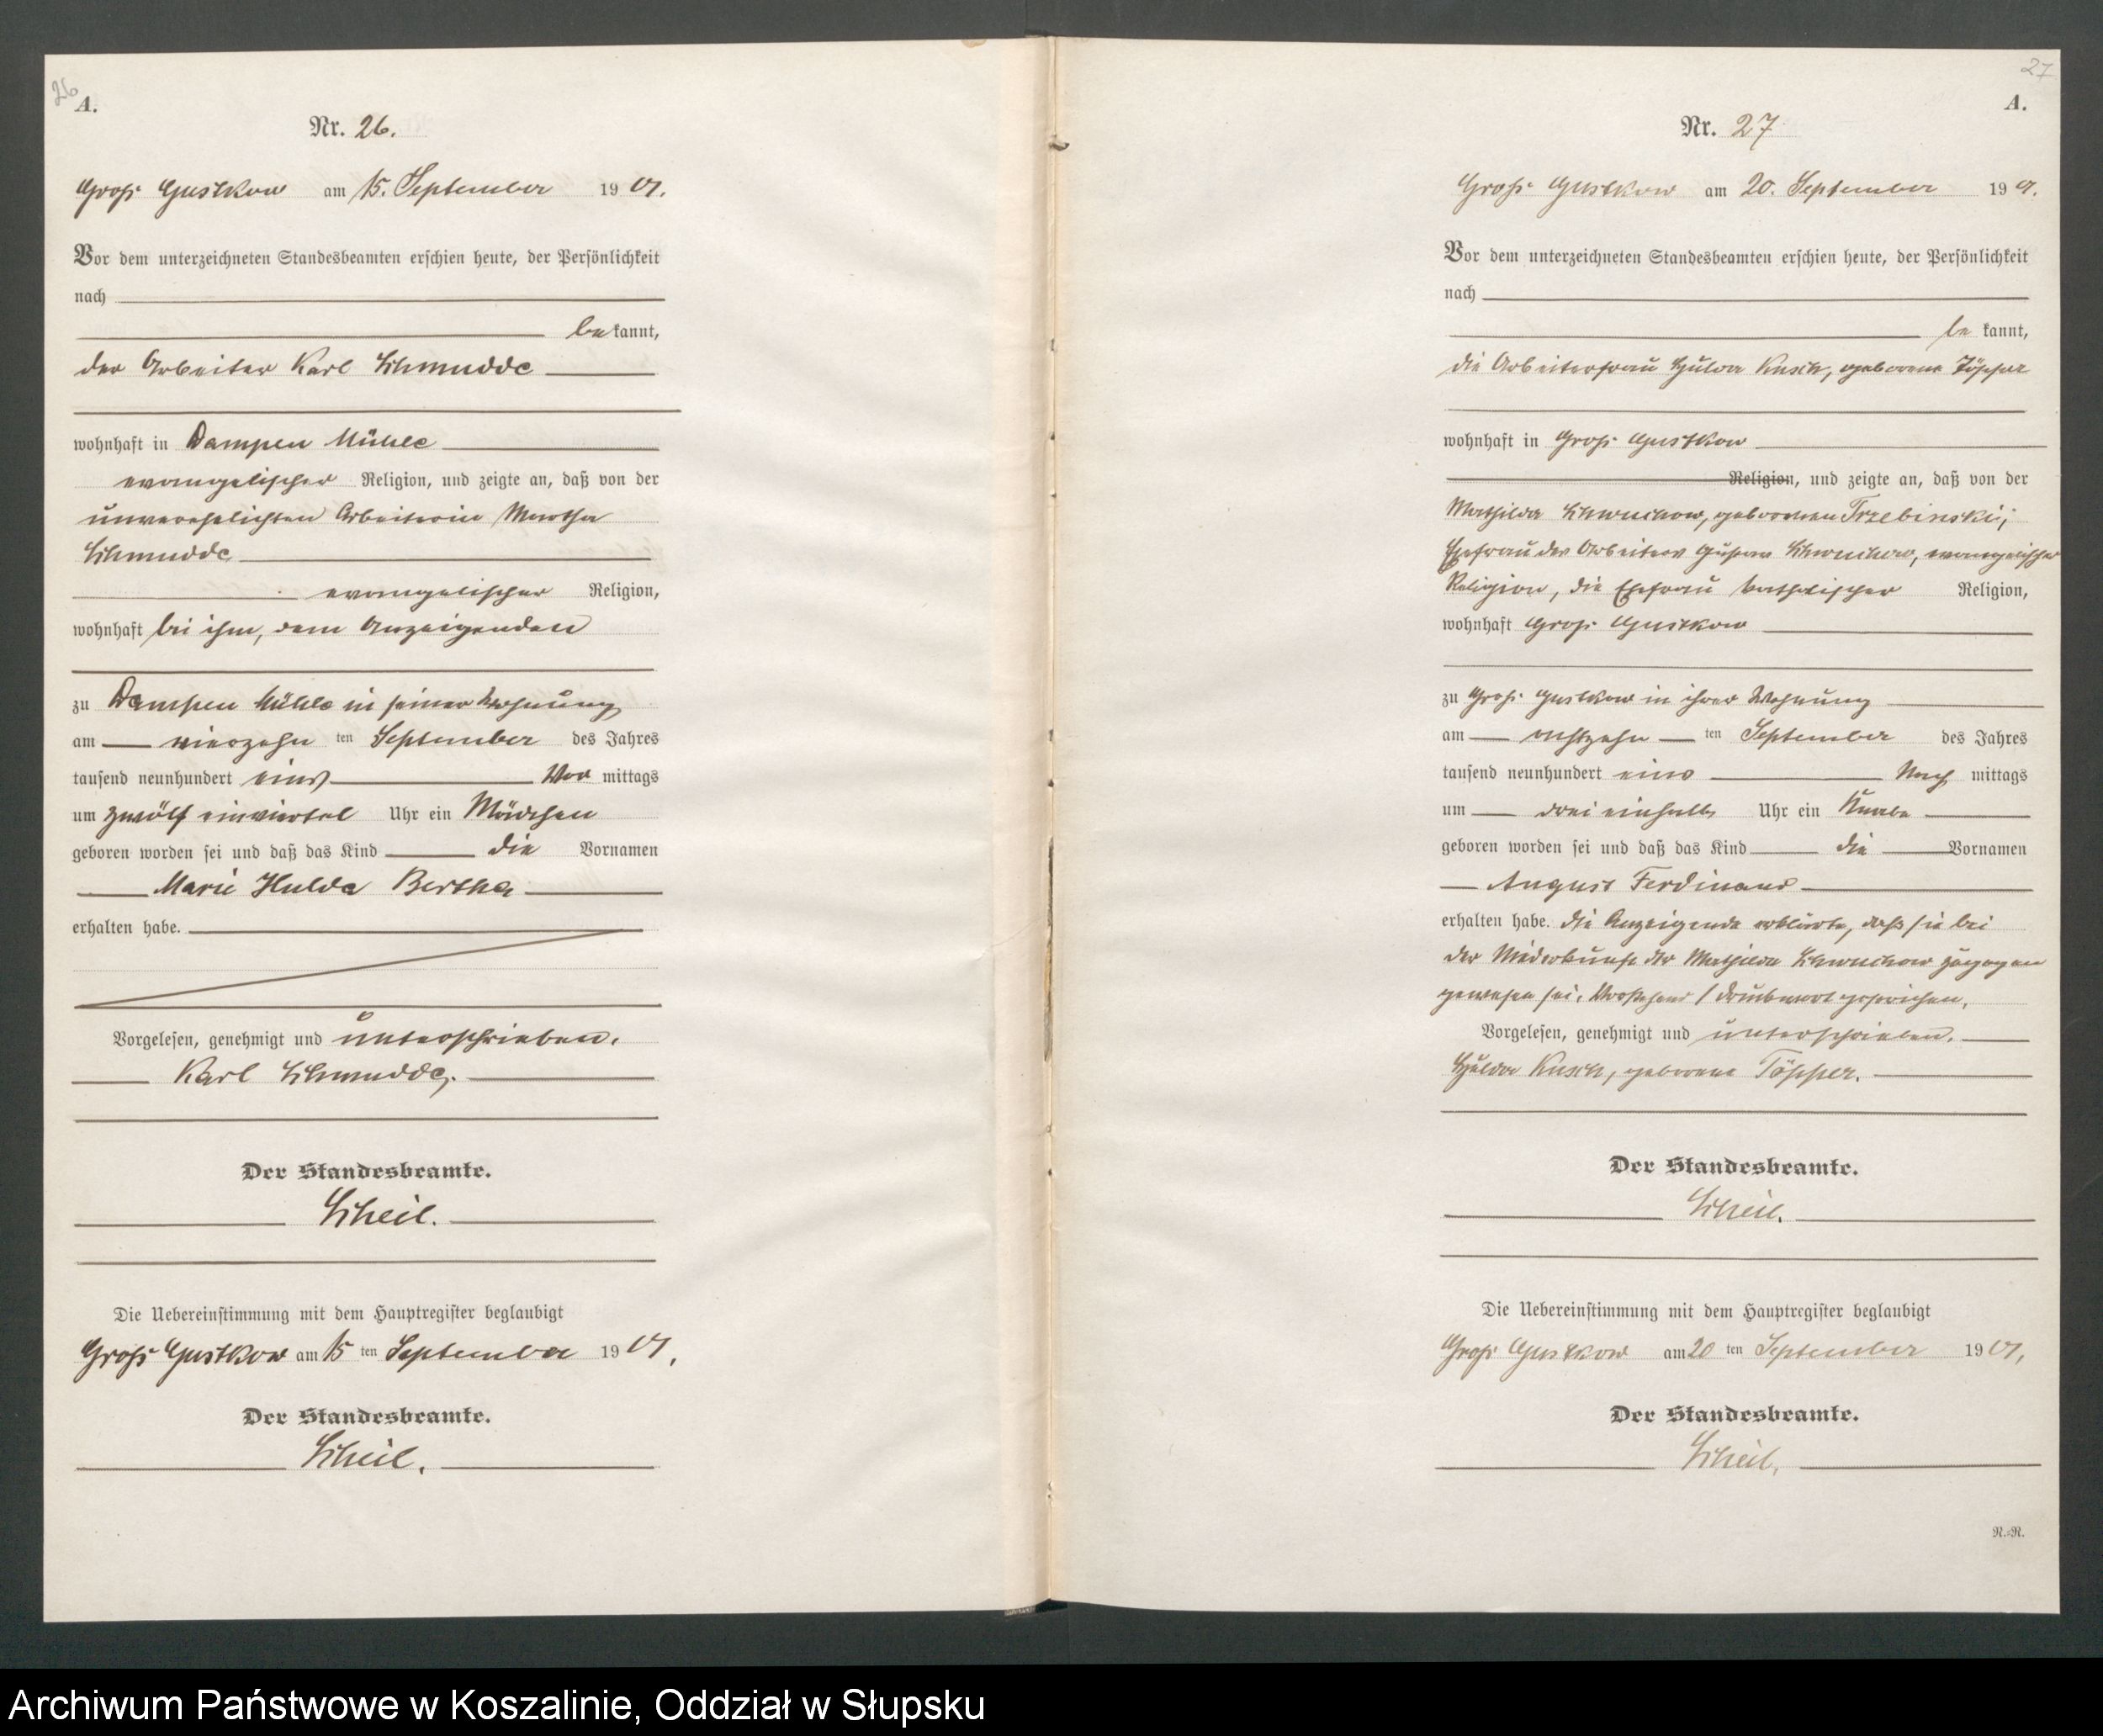 26
A.
Nr. 26.
Groß Gustkow am 15. September 1901.
Vor dem unterzeichneten Standesbeamten erschien heute, der Persönlichkeit
nach
be kannt,
der Arbeiter Karl Schmudde
wohnhaft in Dampen Mühle
evangelischer Religion, und zeigte an, daß von der
unverehelichten Arbeiterin Martha
Schmudde
evangelischer Religion,
wohnhaft bei ihm, dem Anzeigenden
zu Dampen Mühle in seiner Wohnung
am vierzehn ten September des Jahres
tausend neunhundert eins Vor mittags
um zwölf einviertel Uhr ein Mädchen
geboren worden sei und daß das Kind die Vornamen
Marie Hulda Bertha
erhalten habe.
Vorgelesen, genehmigt und unterschrieben.
Karl Schmudde.
Der Standesbeamte.
Scheil.
Die Uebereinstimmung mit dem Hauptregister beglaubigt
Groß Gustkow am 15 ten September 1901.
Der Standesbeamte.
Scheil.
27
A.
Nr. 27
Groß Gustkow am 20. September 1901.
Vor dem unterzeichneten Standesbeamten erschien heute, der Persönlichkeit
nach
be kannt,
die Arbeiterfrau Hulda Kusch, geborene Töpper
wohnhaft in Groß Gustkow
Religion, und zeigte an, daß von der
Mathilda Schwuchow, geborenen Trzebinski,
Ehefrau des Arbeiters Gustav Schwuchow, evangelischer
Religion, die Ehefrau katholischer Religion,
wohnhaft Groß Gustkow
zu Groß Gustkow in ihrer Wohnung
am achtzehn ten September des Jahres
tausend neunhundert eins Nach mittags
um drei einhalb Uhr ein Knabe
geboren worden sei und daß das Kind die Vornamen
August Ferdinand
erhalten habe. Die Anzeigende erklärte, daß sie bei
der Niederkunft der Mathilda Schwuchow zugegen
gewesen sei. Vorstehend 1 Druckwort gestrichen.
Vorgelesen, genehmigt und unterschrieben.
Hulda Kusch, geborene Töpper.
Der Standesbeamte.
Scheil.
Die Uebereinstimmung mit dem Hauptregister beglaubigt
Groß Gustkow am 20 ten September 1901.
Der Standesbeamte.
Scheil.
R.=R.
Archiwum Państwowe w Koszalinie, Oddział w Słupsku